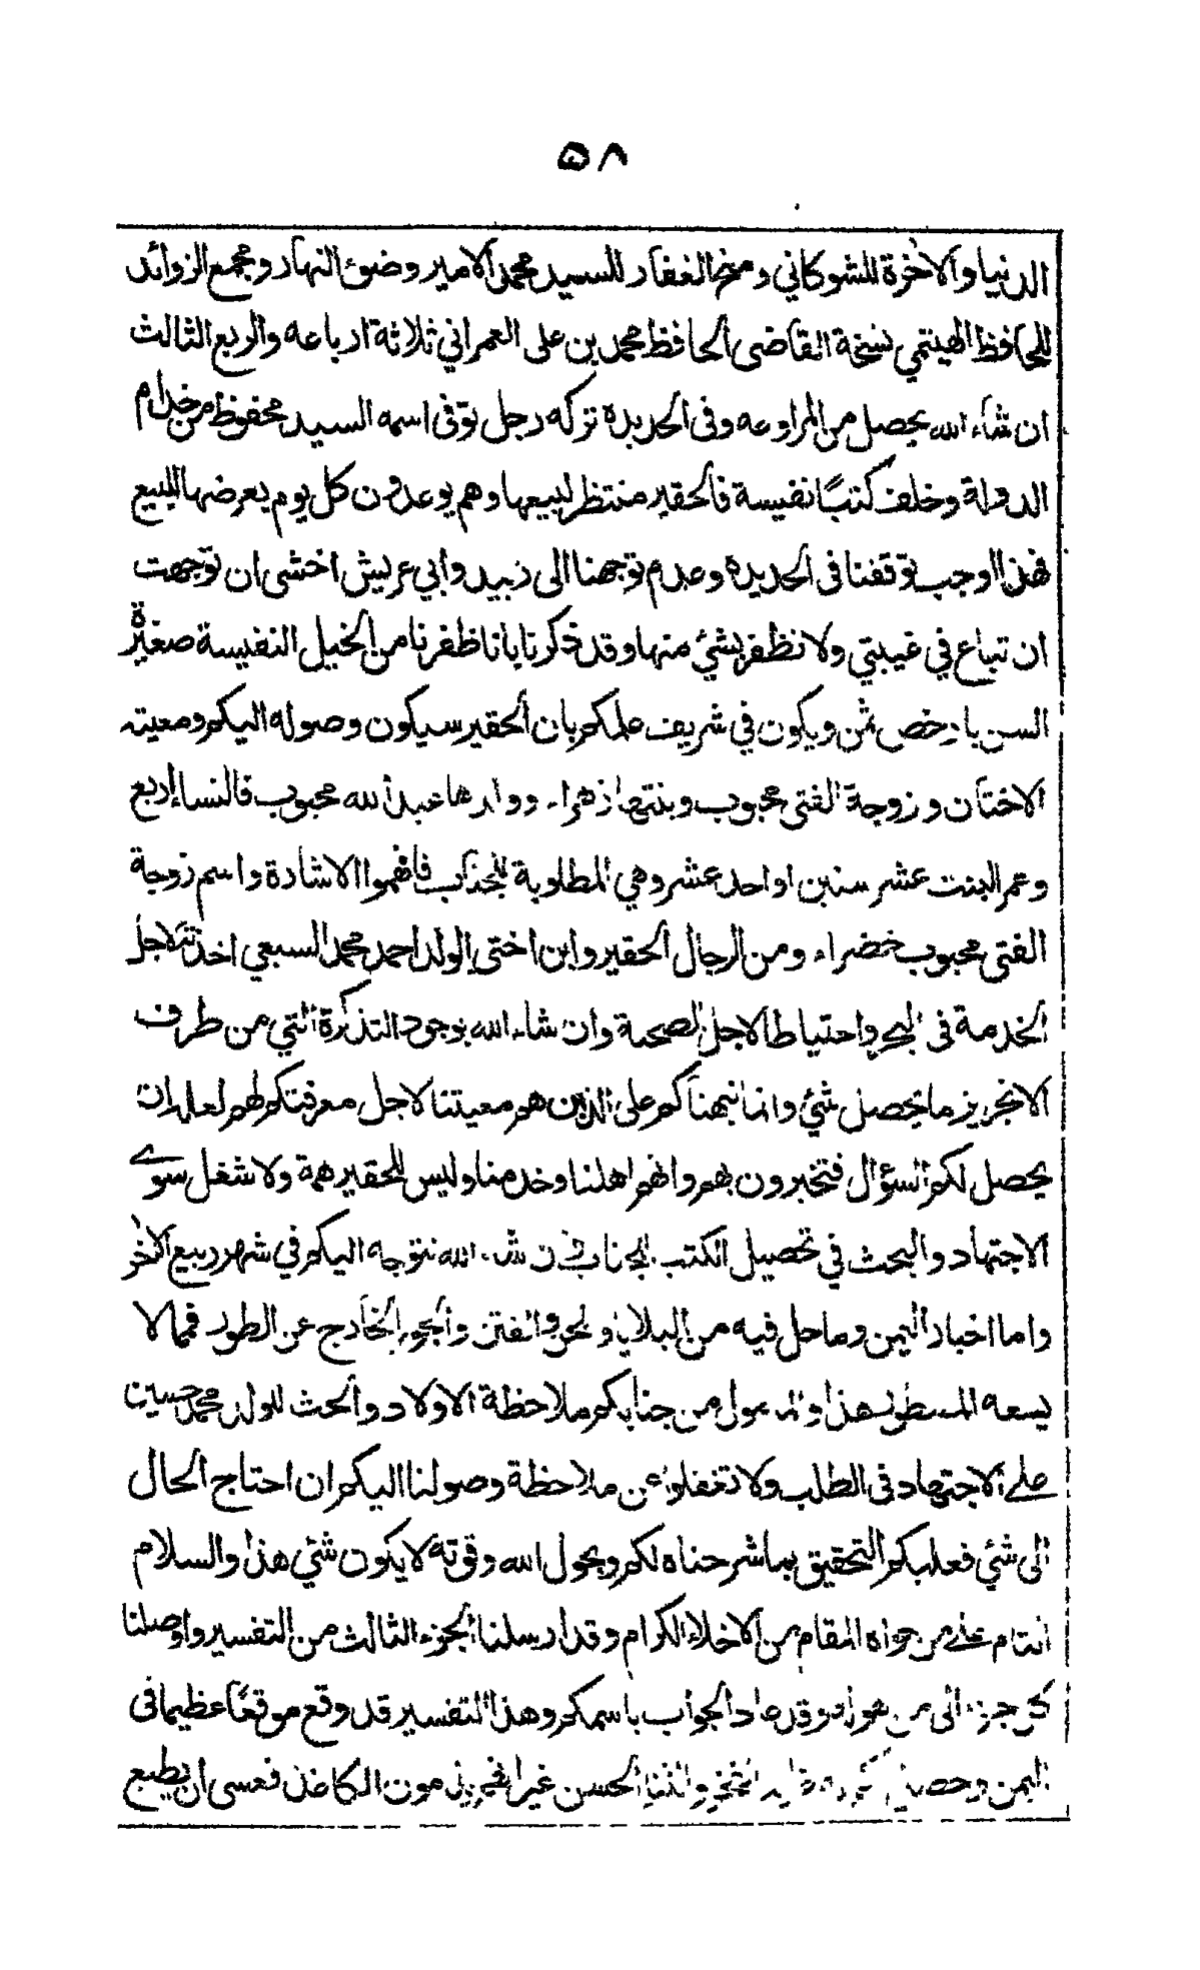 ٥٨
الدنيا والاخرة للشوكاني ومنحة الغفار للسيد محمد الامير وضوء النهار ومجمع الزوائد
للحافظ الهيتمي نسخة القاضى الحافظ محمد بن على العمراني ثلاثة ارباعه والربع الثالث
ان شاء الله يحصل من المراوعه وفى الحديده تركه رجل توفى اسمه السيد محفوظ من خدام
الدولة وخلف كتبًا نفيسة فالحقير منتظر لبيعها وهم يوعدون كل يوم بعرضها للبيع
فهذا اوجب توقفنا فى الحديده وعدم توجهنا الى زبيد وابي عريش اخشى ان توجهت
ان تباع في غيبتي ولا نظفر بشئ منها وقد ذكرنا بانا ظفرنا من الخيل النفيسة صغيرة
السن بارخص ثمن ويكون في شريف علمكم بان الحقير سيكون وصوله اليكم ومعيته
الاختان وزوجة الفتى محبوب وبنتها زهراء وولدها عبد الله محبوب فالنساء اربع
وعمر البنت عشر سنين او احد عشر وهي المطلوبة للجناب فافهموا الاشارة واسم زوجة
الفتى محبوب خضراء ومن الرجال الحقير وابن اختى الولد احمد محمد السبعي اخذته لاجل
الخدمة فى البحر واحتياطا لاجل الصحبة وان شاء الله بوجود التذكرة التي من طرف
الانجريز ما يحصل شئ وانما نبهناكم على الذين هم معيتنا لاجل معرفتكم لهم لعله ان
يحصل لكم السؤال فتخبرون بهم وانهم اهلنا وخدمنا وليس للحقير همة ولا شغل سوى
الاجتهاد والبحث في تحصيل الكتب للجناب ان شاء الله نتوجه اليكم في شهر ربيع الاخر
واما اخبار اليمن وما حل فيه من البلايا والمحن والفتن والجور الخارج عن الطور فمما لا
يسعه المسطور هذا والمأمول من جنابكم ملاحظة الاولاد والحث للولد محمد حسين
على الاجتهاد فى الطلب ولا تغفلوا عن ملاحظة وصولنا اليكم ان احتاج الحال
الى شئ فعليكم التحقيق بما شرحناه لكم وبحول الله وقوته لا يكون شئ هذا والسلام
التام على من حواه المقام من الاخلاء الكرام وقد ارسلنا الجزء الثالث من التفسير واوصلنا
كل جزء الى من هو له وقد عاد الجواب باسمكم وهذا التفسير قد وقع موقعًا عظيما فى
اليمن وحصل والثناء الحسن غير انهم يذمون الكاغذ فعسى ان يطبع